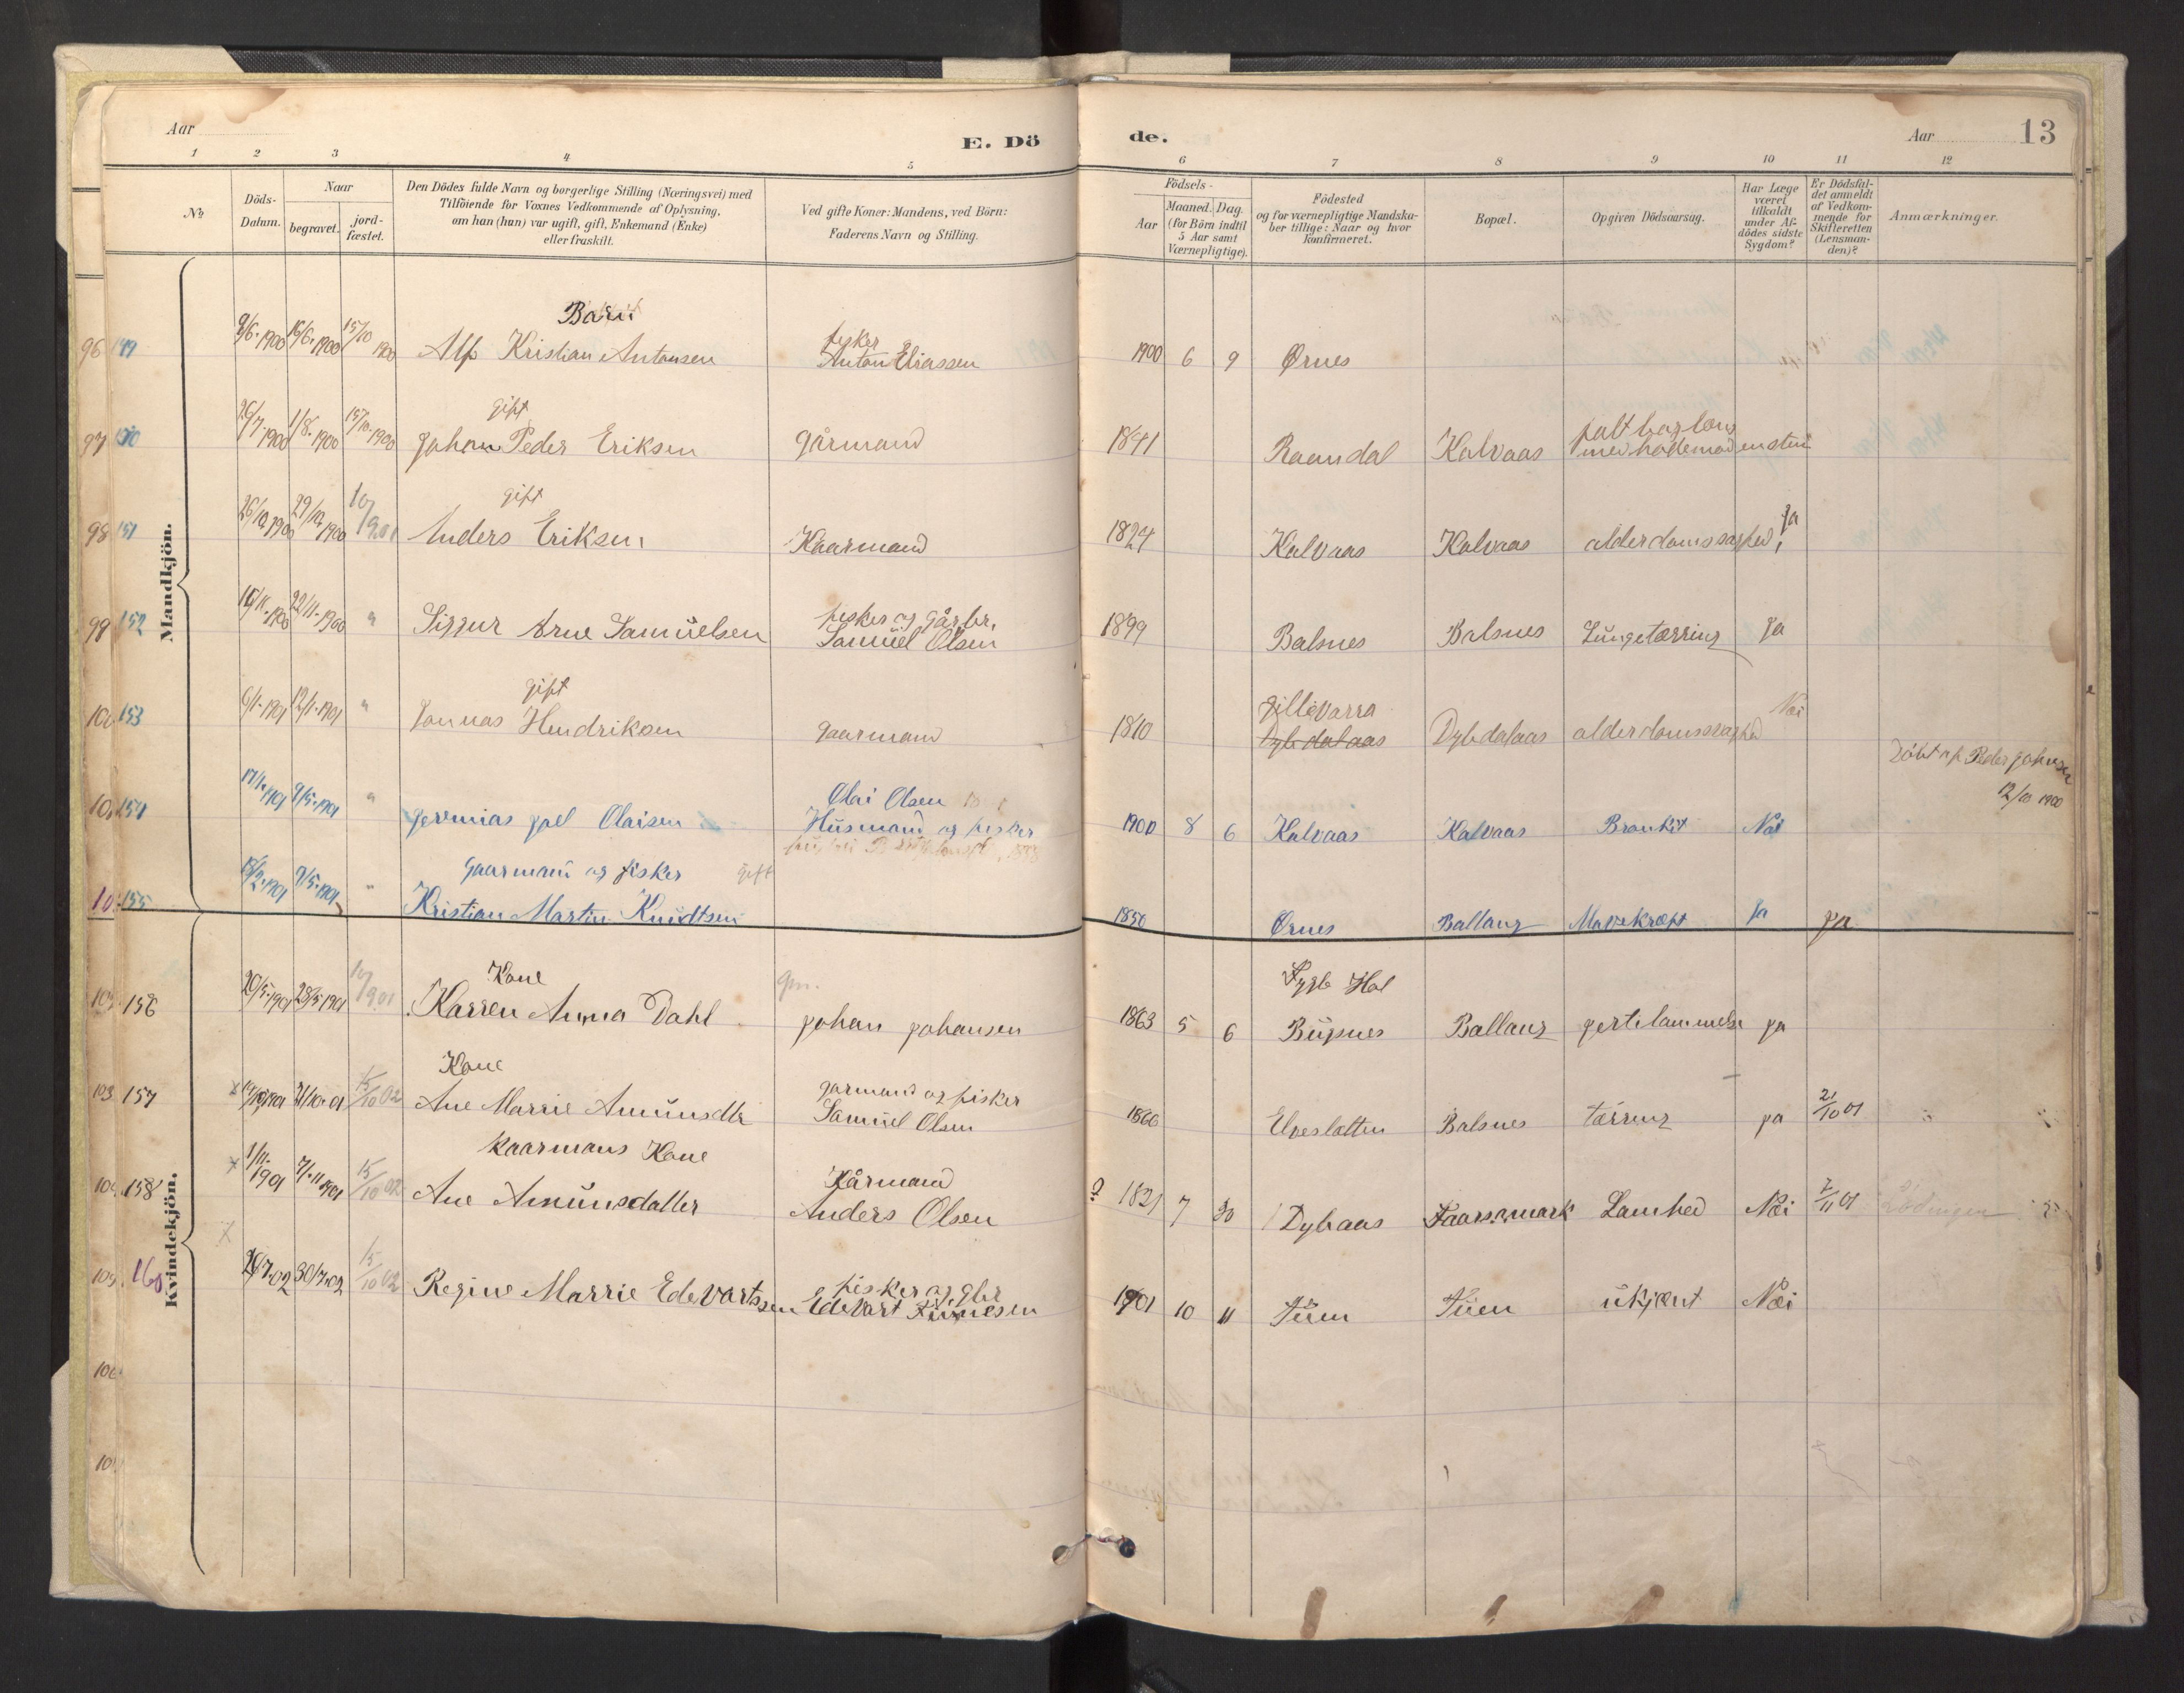 Aar
E. Döde.
Aar
13
1 2 3 4 5 6 7 8 9 10 11 12
No
Döds-Datum.
Naar
begravet.
jordfæstet.
Den Dödes fulde Navn og borgerlige Stilling (Næringsvei) med
Tilföiende for Voxnes Vedkommende af Oplysning,
om han (hun) var ugift, gift, Enkemand (Enke)
eller fraskilt.
Ved gifte Koner: Mandens, ved Börn:
Faderens Navn og Stilling.
Födsels-
Aar
Maaned. Dag.
(for Börn indtil
5 Aar samt
Værnepligtige).
Födested
og for værnepligtige Mandska-
ber tillige: Naar og hvor
konfirmeret.
Bopæl.
Opgiven Dödsaarsag.
Har Læge
været
tilkaldt
under Af-
dödes sidste
Sygdom?
Er Dödsfal-
det anmeldt
af Vedkom-
mende for
Skifteretten
(Lensman-
den)?
Anmærkninger.
Mandkjön.
Barn
96 149 9/6. 1900 16/6. 1900 15/10 1900 Alf Kristian Antonsen
fisker
Anton Eliassen 1900 6 9 Ørnes
gift
97 150 26/7. 1900 1/8. 1900 15/10. 1900 Johan Peder Eriksen gårmand 1841 Raandal Kalvaas
gift
98 151 26/10 1900 29/10 1900 10/9.01 Anders Eriksen Kaarmand 1824 Kalvaas Kalvaas alderdomssvaghed, Ja
99 152 22/11. 1900 " Siggur Arne Samuelsen
fisker og gårbr,
Samuel Olsen 1899 Balsnes Balsnes Lungetærring Ja
gift
153 6/1. 1901 12/1. 1901 " Jonnas Hendriksen gaarmand 1810
Jillevarra
Dybdalaas Dybdalaas alderdomssvaghed Nei
154 17/1. 1901 9/5. 1901 " Jeremias Joel Olaisen
Olai Olsen
Husmand og fisker
1900 8 6 Kalvaas Kalvaas Bronkit Nei
Döbt af Peder Johnsen
12/10 1900
gaarmand og fisker gift
155 18/2. 1901 9/5. 1901 " Kristian Martin Knudtsen 1850 Ørnes Ballang Mavekræft Ja Ja
Kvindekjön.
Kone
156 20/5. 1901 28/5 1901 10/9.01 Karren Anna Dahl
gm.
Johan Johansen 1863 5 6
Bujsnes Ballang hertelammelse ja
Kone
103 157 21/10. 01 15/10 02 Ane Marrie Amunsdtr
garmand og fisker
Samuel Olsen 1866 Elveslotten Balsnes tærring ja 21/10 01
kaarmans Kone
158 1/11. 1901 7/11 1901 15/10 02 Ane Amunsdatter
Kårmand
Anders Olsen ? 1821 7 30 Dybaas Faarsmark Lamhed Nei 7/11 01 Lödingen
105 160 26/7.02 30/7.02 15/10 02 Regine Marrie Edevartssen
fisker og gbr
Edevart 1901 10 11 Tuen Tuen ukjent Nei
106